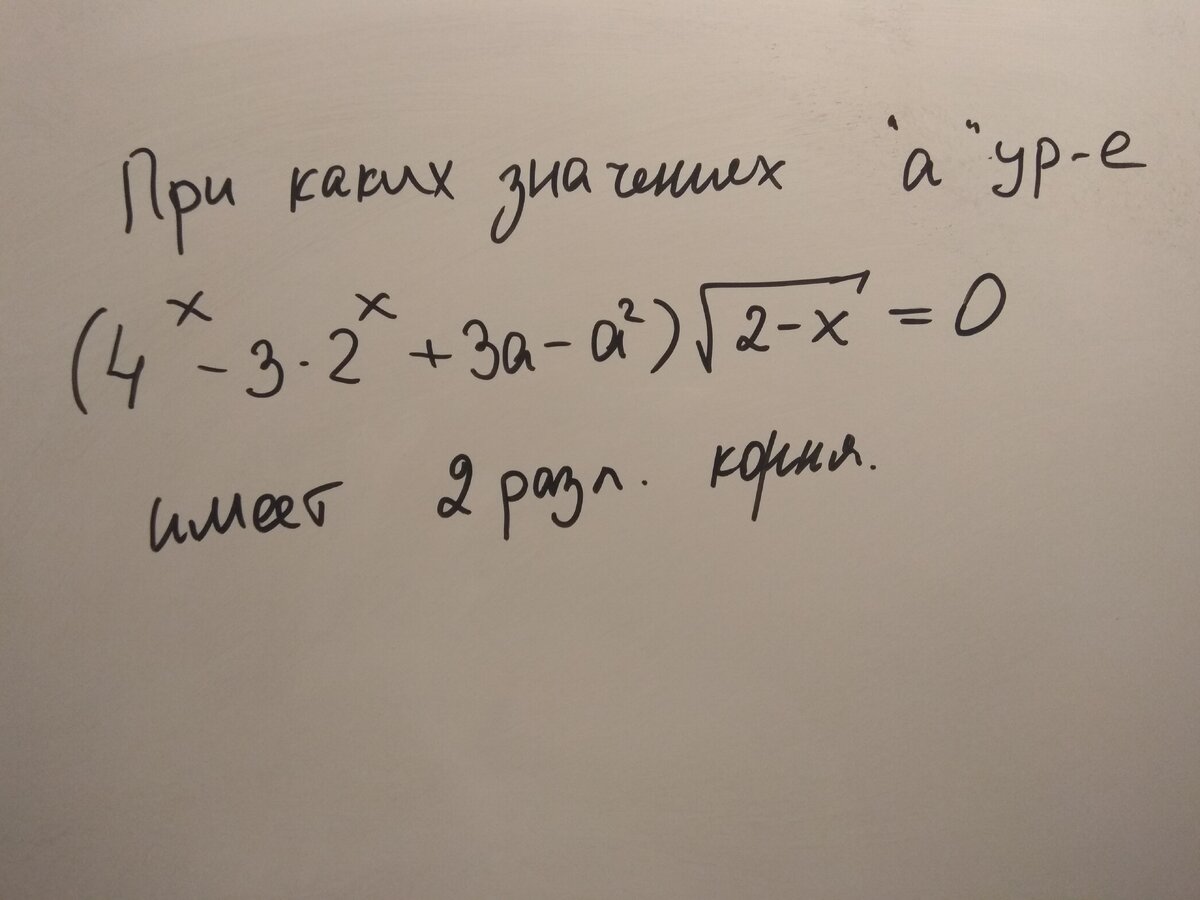 При каких значениях "а" ур-е
(4^x - 3·2^x + 3a - a²)√(2-x) = 0
имеет 2 разл. корня.